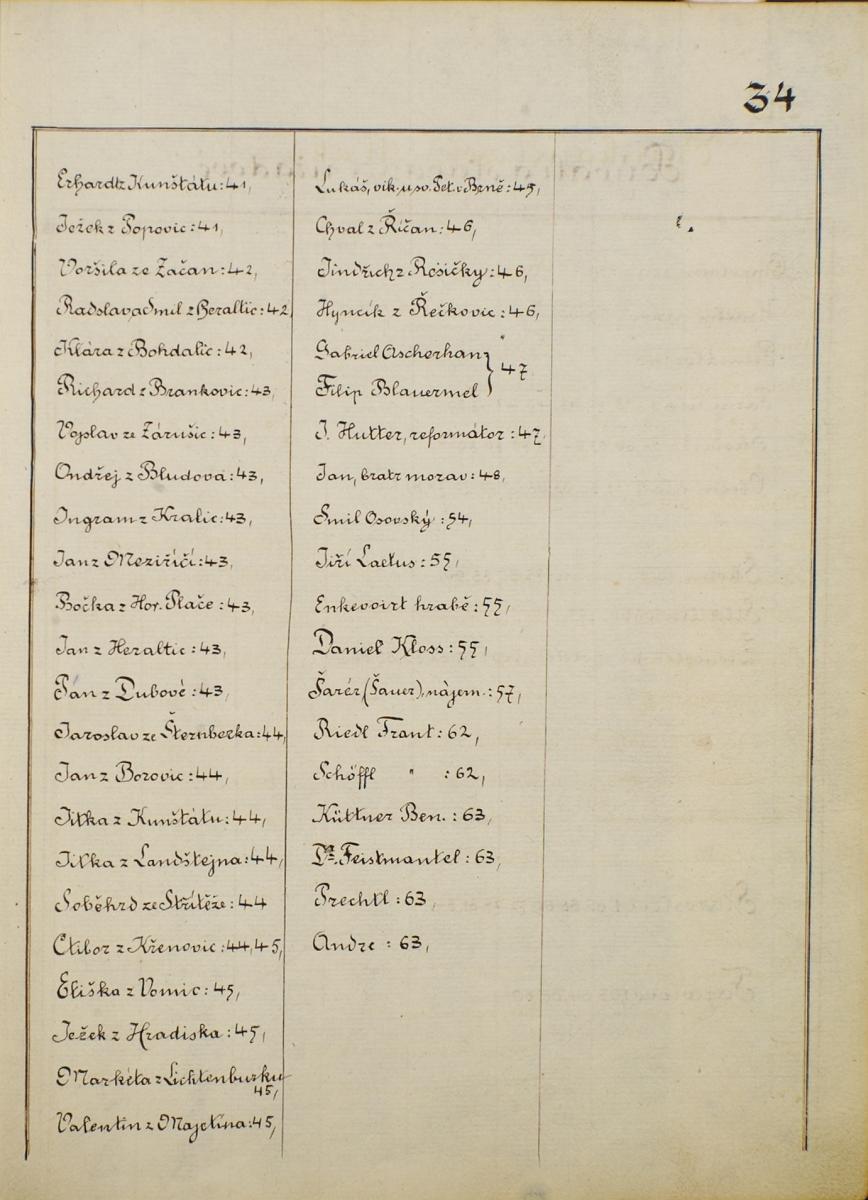 34
Erhard z Kunštátu: 41,
Ježek z Popovic: 41,
Voršila ze Začan: 42,
Radslav a Smil z Heraltic: 42
Klára z Bohdalic: 42,
Richard z Brankovic: 43,
Vojslav ze Zárušic: 43,
Ondřej z Bludova: 43,
Ingram z Kralic: 43,
Jan z Meziříčí: 43,
Bočka z Hor. Plače: 43,
Jan z Heraltic: 43,
Pan z Dubové: 43,
Jaroslav ze Šternberka: 44,
Jan z Borovic: 44,
Jitka z Kunštátu: 44,
Jitka z Landštejna: 44,
Soběhrd ze Střítěže: 44
Ctibor z Křenovic: 44, 45,
Eliška z Vomic: 45,
Ježek z Hradiska: 45,
Markéta z Lichtenburku
45,
Valentin z Majetína: 45,
Lukáš, vik. u sv. Pet. v Brně: 45,
Chval z Říčan: 46,
Jindřich z Rosičky: 46,
Hyncík z Řečkovic: 46,
Gabriel Ascherhan
Filip Blauermel } 47
J. Hutter, reformátor: 47,
Jan, bratr morav: 48,
Smil Osovský: 54,
Jiří Laetus: 55,
Enkevoirt hrabě: 55,
Daniel Kloss: 55,
Šarér (Šauer), nájem.: 57,
Riedl Frant: 62,
Schöffl " : 62,
Küttner Ben.: 63,
Dr. Feistmantel: 63,
Prechtl: 63,
Andre: 63,